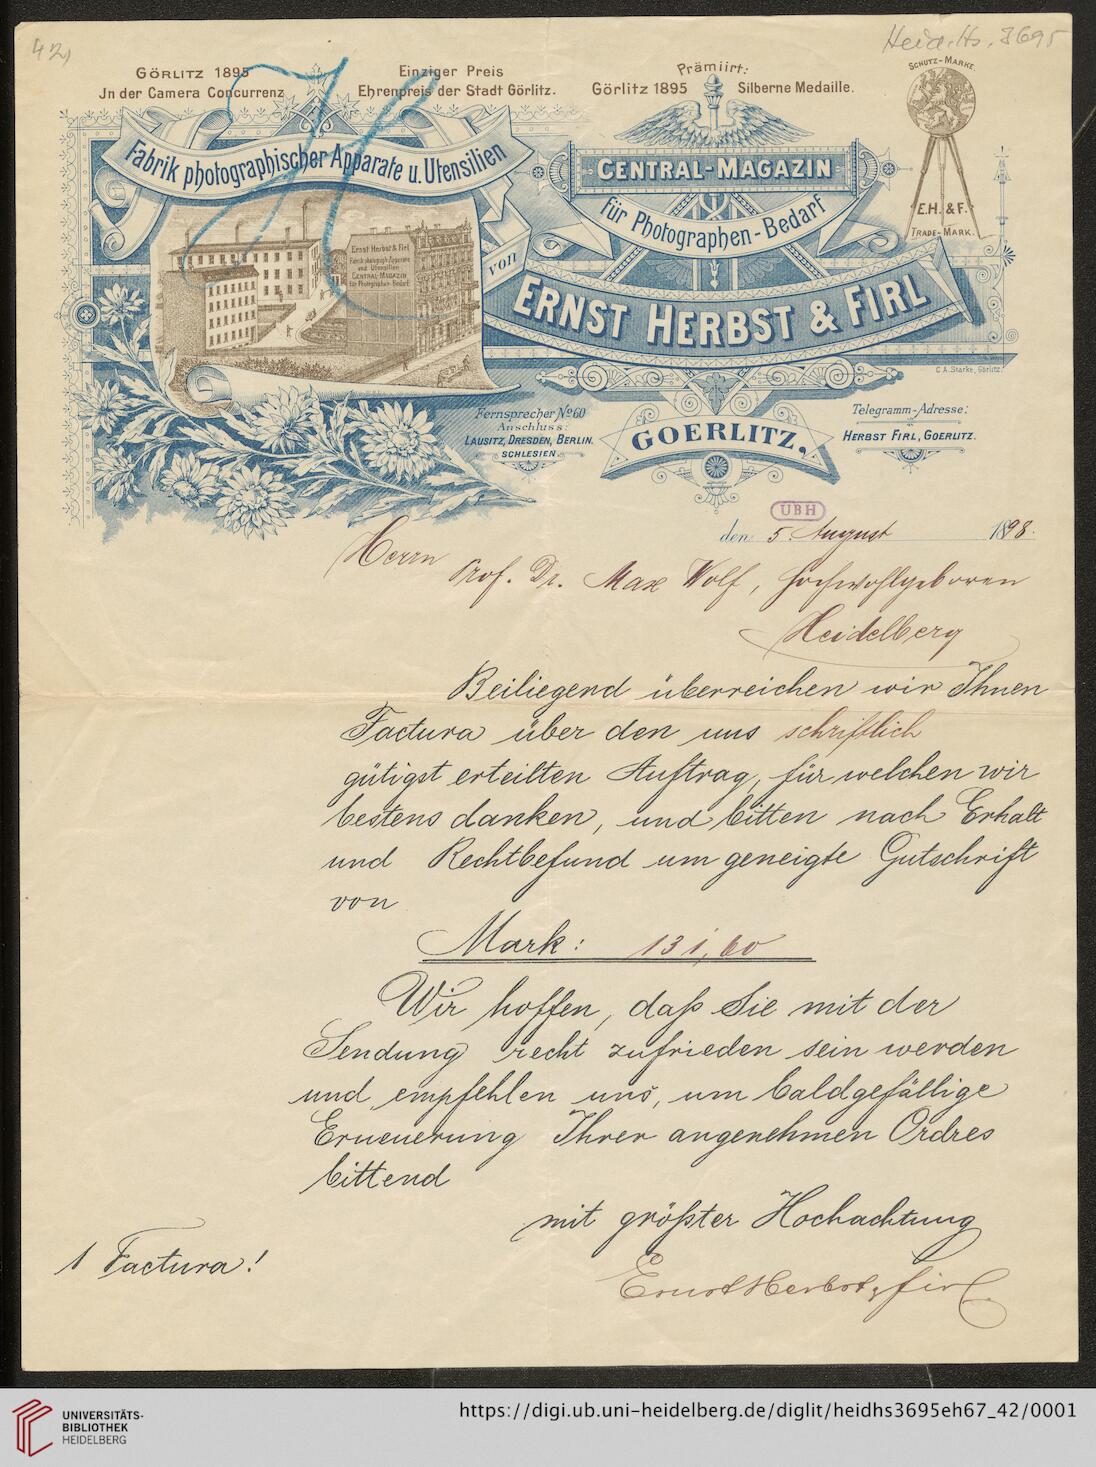 42)
Heid. Hs. 3695
GÖRLITZ 1895
Jn der Camera Concurrenz
Einziger Preis
Ehrenpreis der Stadt Görlitz.
Prämiirt:
Görlitz 1895 Silberne Medaille.
SCHUTZ-MARKE.
E.H. & F.
TRADE-MARK.
Fabrik photographischer Apparate u. Utensilien
CENTRAL-MAGAZIN
für Photographen-Bedarf
von
ERNST HERBST & FIRL
Ernst Herbst & Firl
Fabrik photograph. Apparate
und Utensilien
CENTRAL-MAGAZIN
für Photographen-Bedarf.
C. A. Starke, Görlitz.
Fernsprecher No 60
Anschluss:
LAUSITZ, DRESDEN, BERLIN.
SCHLESIEN.
GOERLITZ,
Telegramm-Adresse:
HERBST FIRL, GOERLITZ.
UBH
den 5. August 1898.
Herrn
Prof. Dr. Max Wolf, Hochwohlgeboren
Heidelberg
Beiliegend überreichen wir Ihnen
Factura über den uns schriftlich
gütigst erteilten Auftrag, für welchen wir
bestens danken, und bitten nach Erhalt
und Rechtbefund um geneigte Gutschrift
von
Mark: 131,60
Wir hoffen, daß Sie mit der
Sendung recht zufrieden sein werden
und empfehlen uns, um baldgefällige
Erneuerung Ihrer angenehmen Ordres
bittend
mit größter Hochachtung
Ernst Herbst & Firl.
1 Factura!
UNIVERSITÄTS-
BIBLIOTHEK
HEIDELBERG
https://digi.ub.uni-heidelberg.de/diglit/heidhs3695eh67_42/0001